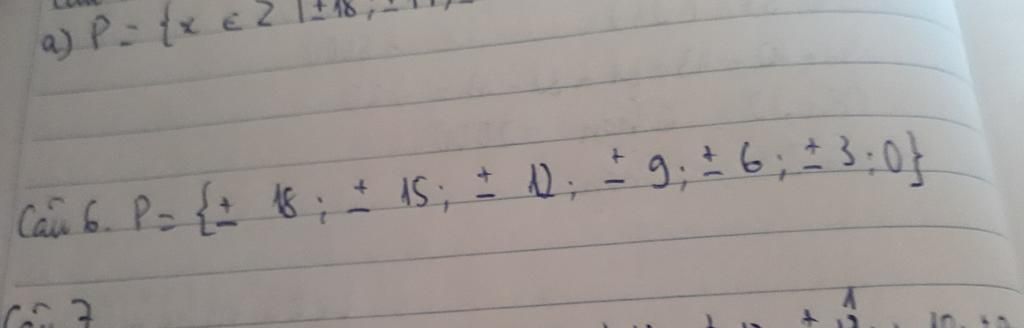 a) P = {x ∈ Z | ± 18 ; ±
Câu 6. P = {± 18 ; ± 15 ; ± 12 ; ± 9 ; ± 6 ; ± 3 ; 0}
Câu 7